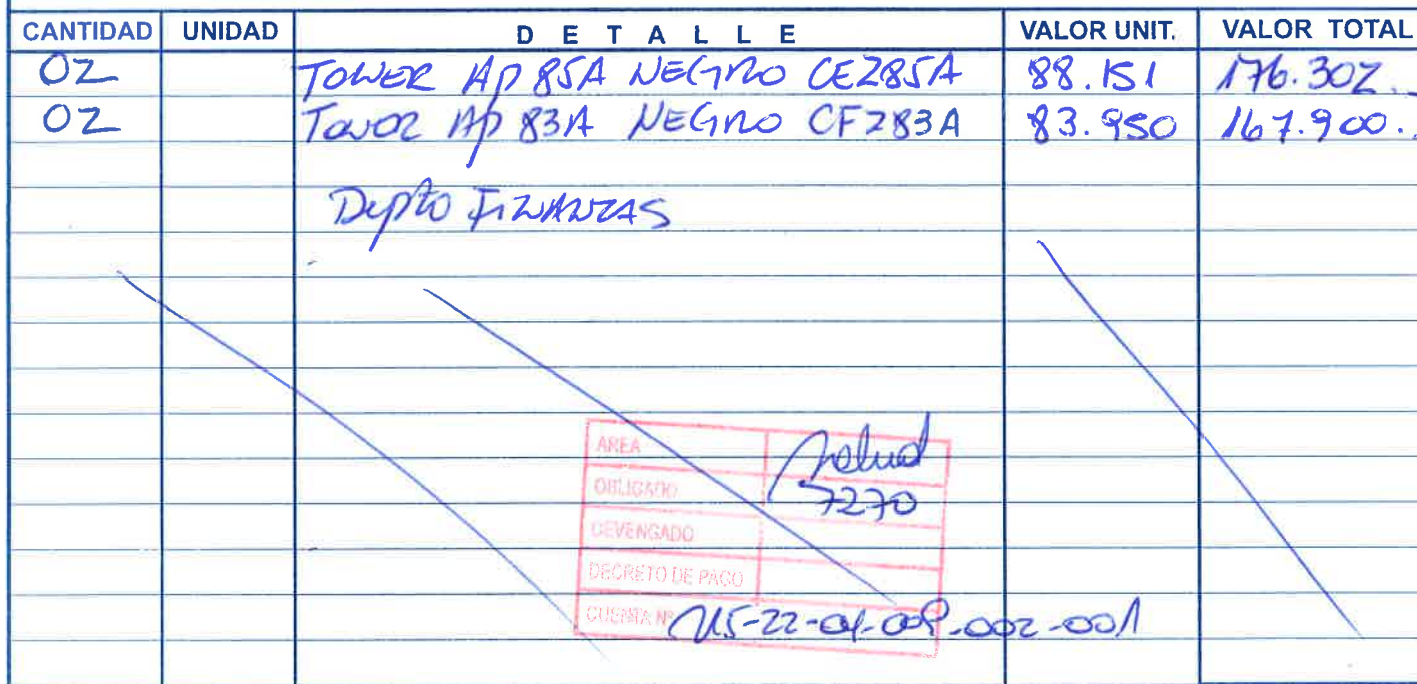 CANTIDAD UNIDAD DETALLE VALOR UNIT. VALOR TOTAL
02 TONER HP 85A NEGRO CE285A 88.151 176.302.-
02 TONER HP 83A NEGRO CF283A 83.950 167.900.-
Depto FINANZAS
AREA Salud
OBLIGADO 7270
DEVENGADO
DECRETO DE PAGO
CUENTA Nº 215-22-04-009-002-001